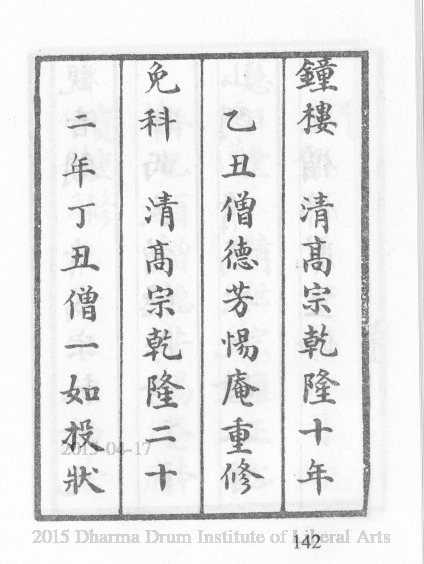 鐘樓 清高宗乾隆十年
乙丑僧德芳惕庵重修
免科 清高宗乾隆二十
二年丁丑僧一如投狀
2015-04-17
2015 Dharma Drum Institute of Liberal Arts
142